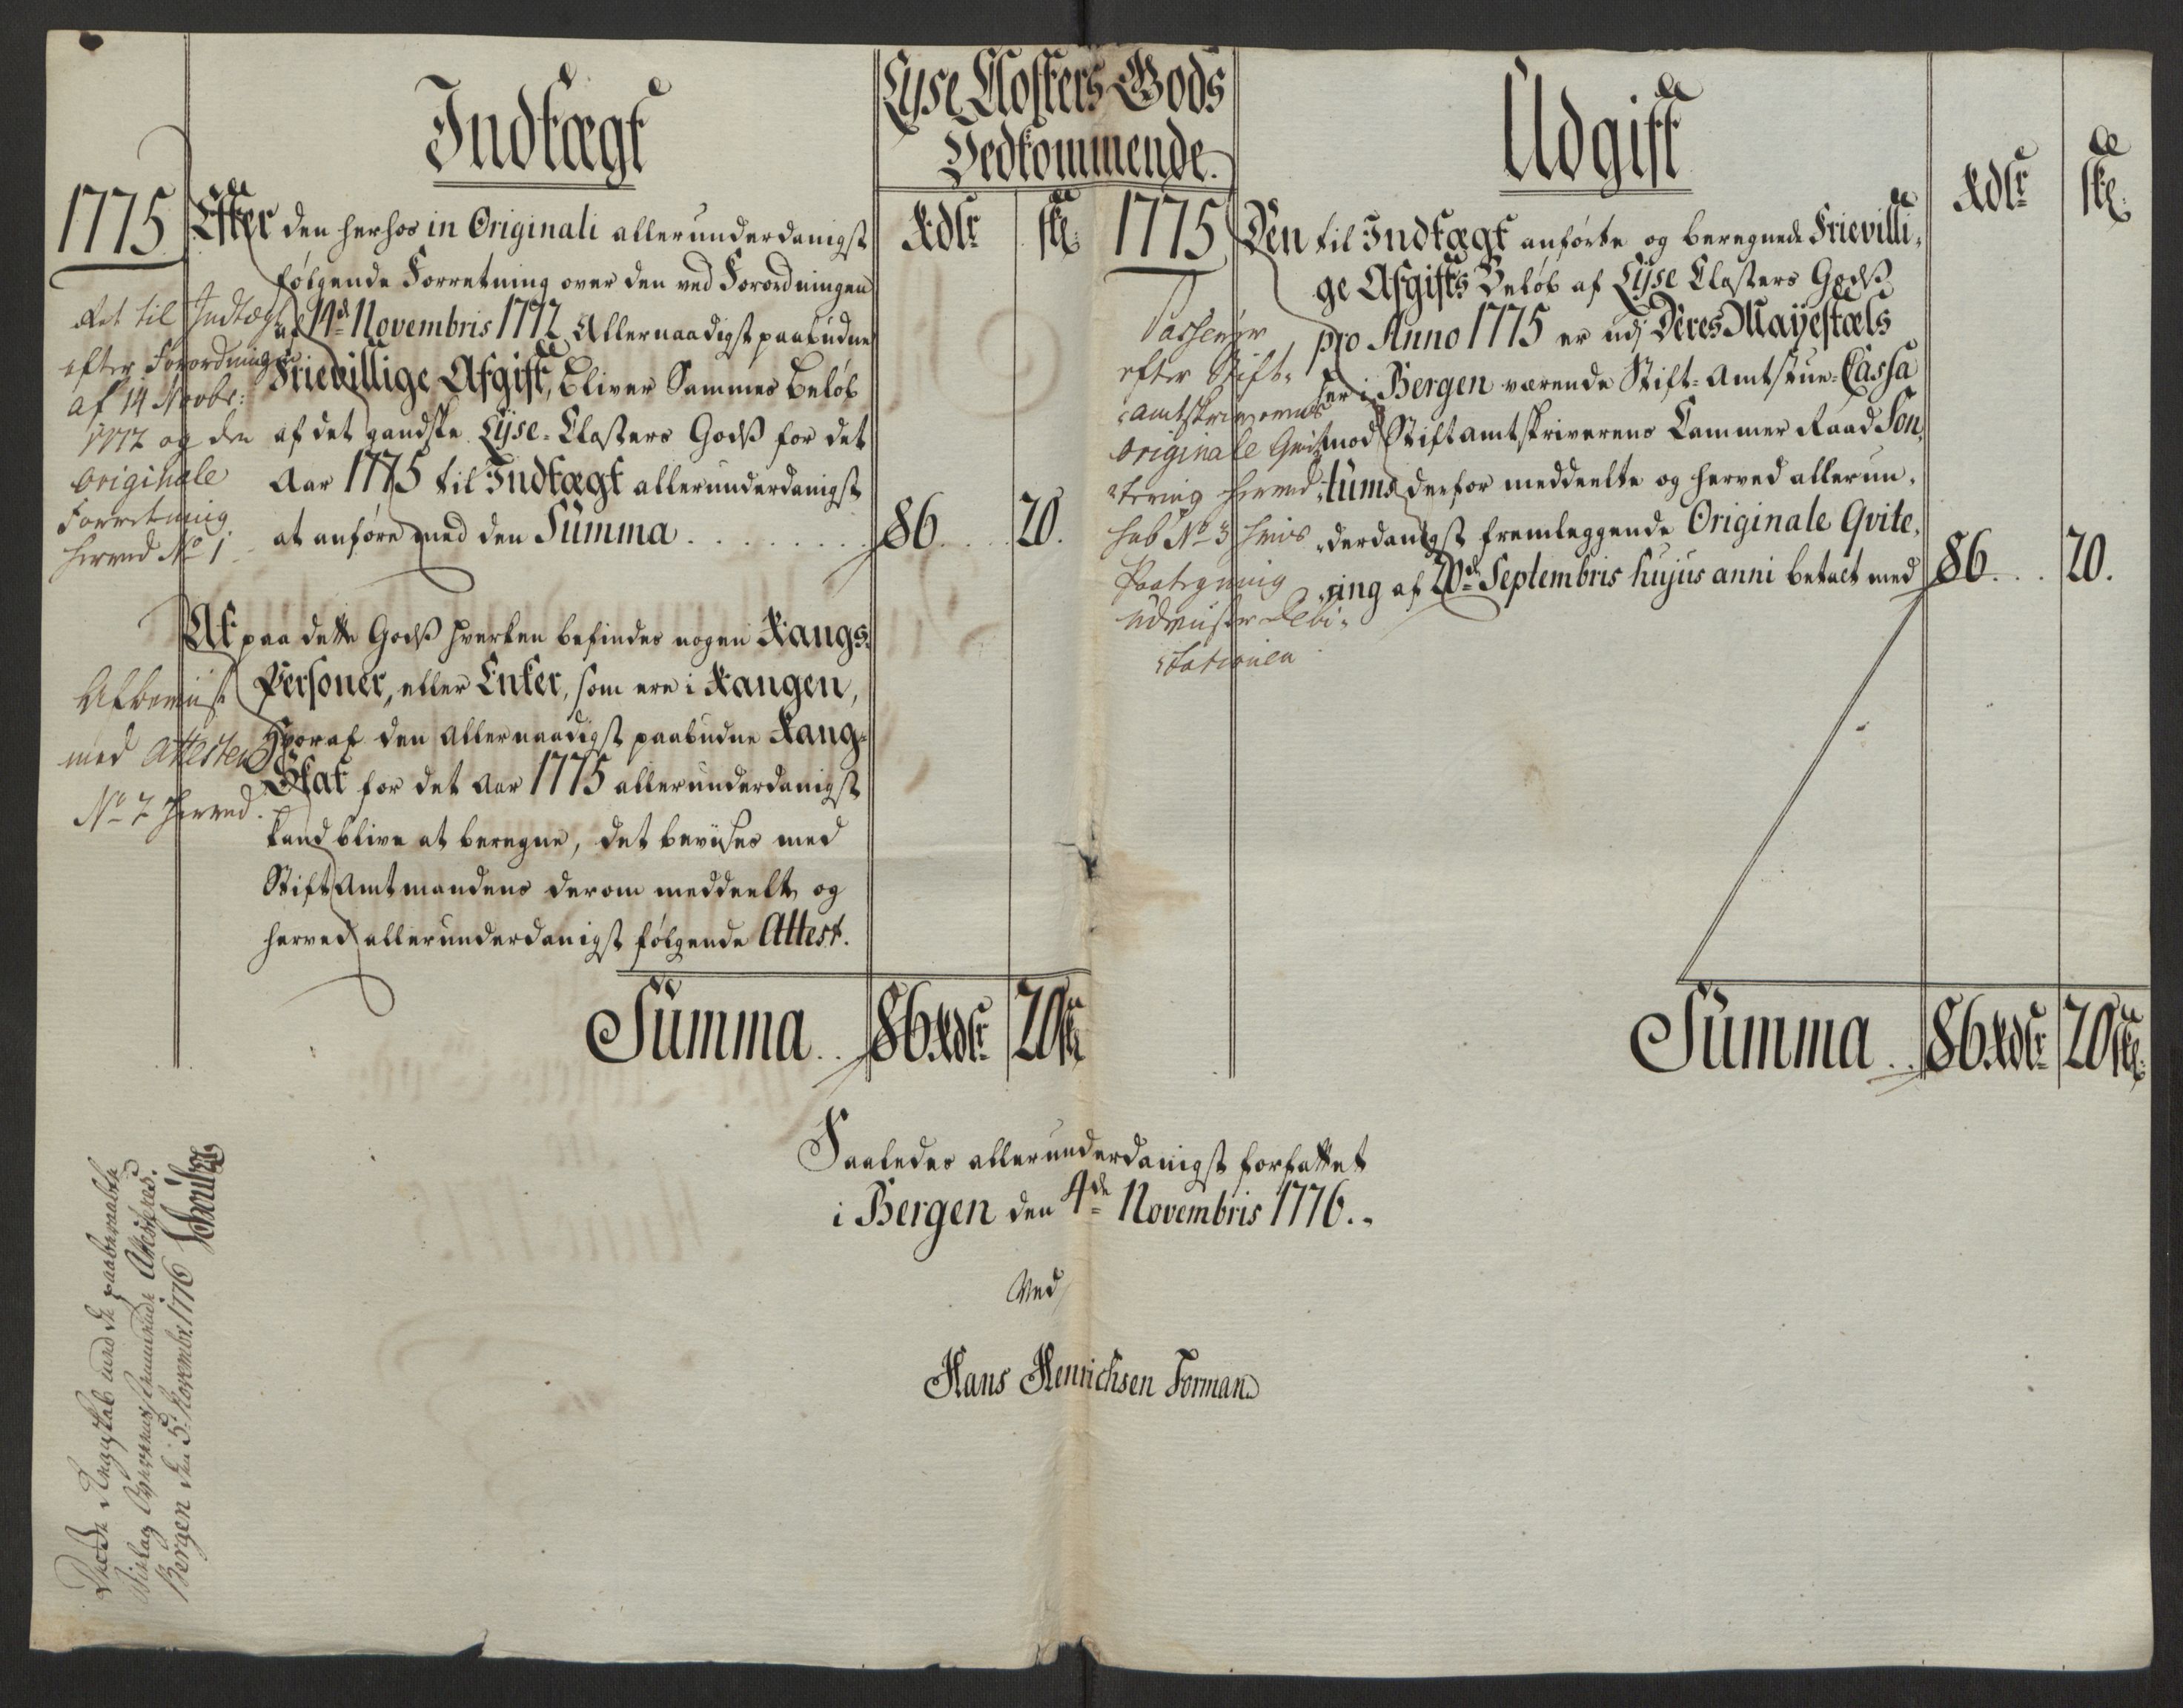 Lyse Closters Gods
Vedkommende.
Indtægt
Rdlr
ſk:
1775
Efter den herhos in Originali allerunderdanigst
følgende Forretning over den ved Forordningen
af 14de Novembris 1772 Allernaadigst paabudne
Frievillige Afgift, bliver Sammes Beløb
af det gandske Lyse-Closters Godß for det
Aar 1775 til Indtægt allerunderdanigst
at anføre med den Summa . . . . . . . . 86. . . 20.
Ret til Indtægt
efter Forordningen
af 14 Novbr:
1772 og den
originale
Forretning
herved No 1
At paa dette Godß hverken befindes nogen Rangs-
Personer, eller Enker, som ere i Rangen,
hvoraf den allernaadigst paabudne Rang-
Skat for det Aar 1775 allerunderdanigst
kand blive at beregne, det beviises med
Stift Amtmandens derom meddeelte og
herved allerunderdanigst følgende Attest.
Afbeviist
med Attesten
No 2 herved.
Summa . . 86 Rdlr 20 ſk
Udgift
Rdlr
ſk:
1775
Den til Indtægt anførte og beregnede Frievilli-
ge Afgifts Beløb af Lyse Closters Godß
pro Anno 1775 er udj Deres Mayestæts
her i Bergen værende Stift-Amtstue-Cassa
mod Stiftamtskriverens Cammer Raad Son-
tums derfor meddeelte og herved allerun-
derdanigst fremleggende Originale Qvite-
ring af 20de Septembris hujus anni betalt med 86. . . 20.
Passerer
efter Stift-
amtskriverens
originale Qvit-
tering herved
sub No 3 hvis
Paategning
udviiser Debi-
tationen
Summa . . 86 Rdlr 20 ſk:
Saaledes allerunderdanigst forfattet
i Bergen den 4de Novembris 1776.
Ved
Hans Henrichsen Forman
Dette Regnskab med de paaberaabte
Bilag Attesteres.
Bergen den 5. Novembr. 1776